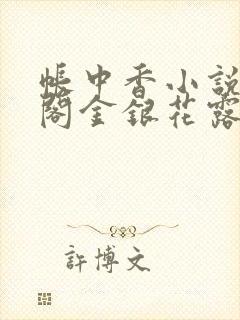 帳中香小說
閣金銀花露
許博文